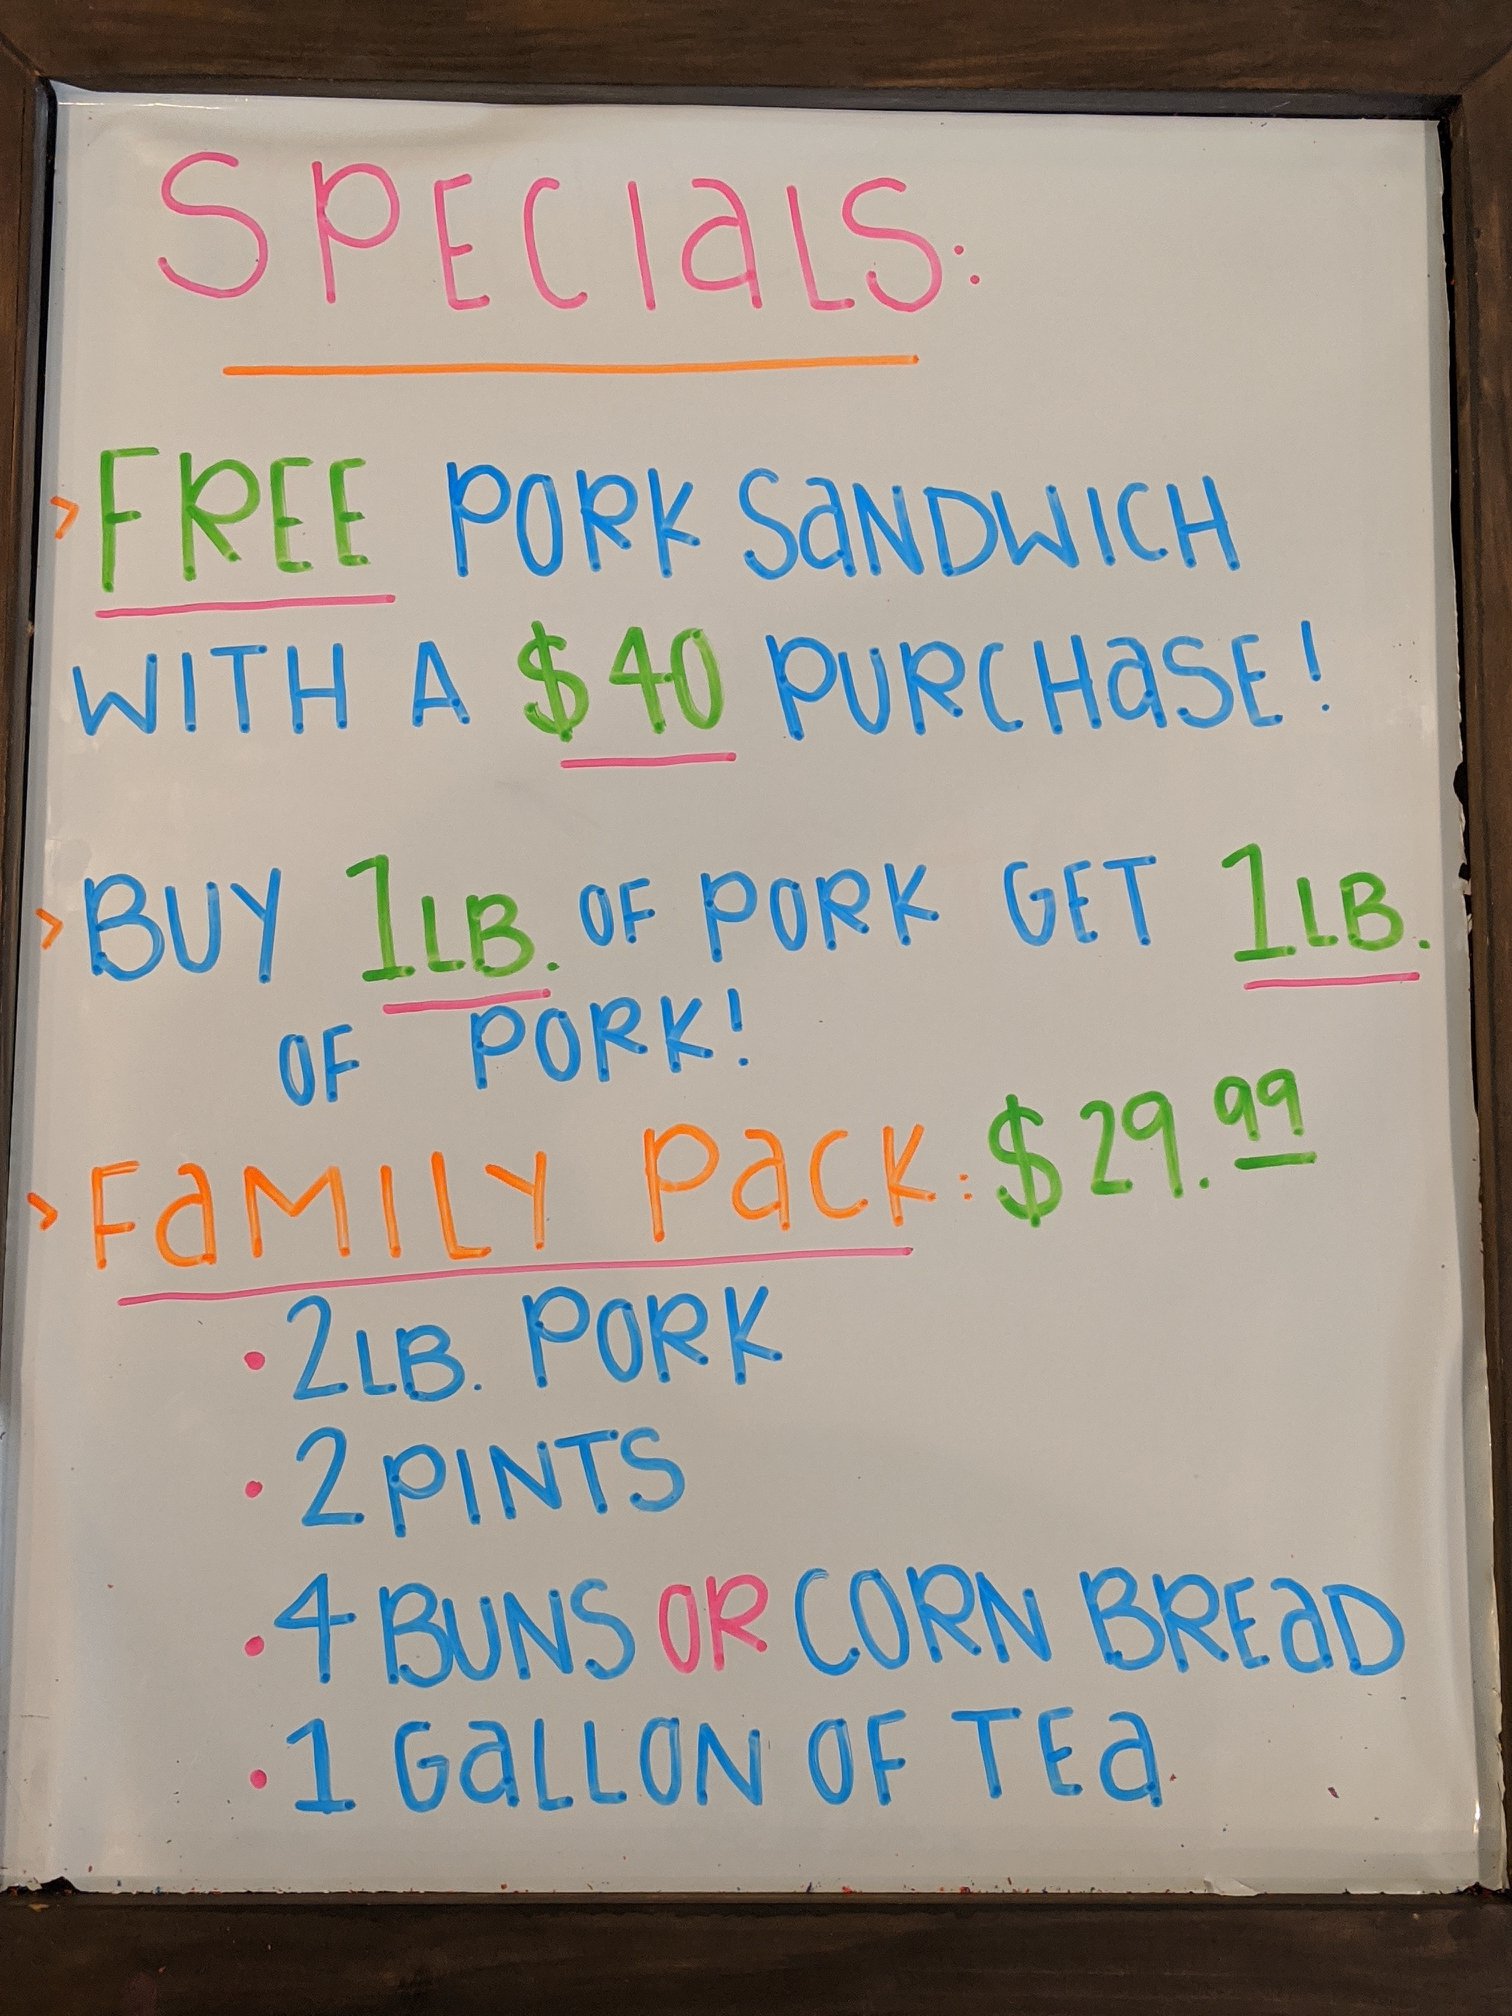 SPECIALS:
> FREE PORK SANDWICH
WITH A $40 PURCHASE!
> BUY 1LB. OF PORK GET 1LB.
OF PORK!
> FAMILY PACK: $29.99
• 2LB. PORK
• 2 PINTS
• 4 BUNS OR CORN BREAD
• 1 GALLON OF TEA